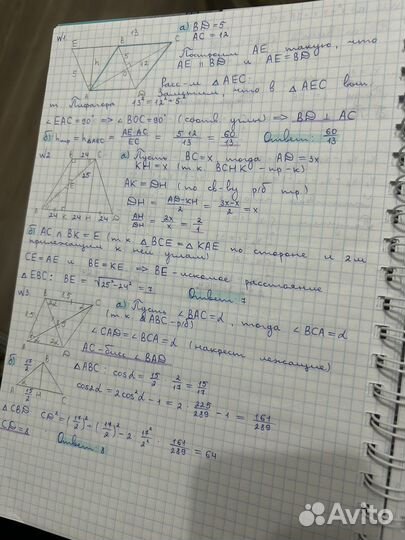 №1.
E
B
13
C
а) BD = 5
AC = 12
5
h
12
A
D
Построим AE такую, что
AE ∥ BD и AE = BD
расс-м △AEC.
Заметим, что в △AEC вып.
т. Пифагора 13² = 12² + 5²
∠EAC = 90° ⟹ ∠BOC = 90° (соотв. углы) ⟹ BD ⊥ AC
б) hтр = h△AEC = AE·AC/EC = 5·12/13 = 60/13 Ответ: 60/13
№2.
B 24 C
25
24 K 24 H 24 D
а) Пусть BC = x, тогда AD = 3x
KH = x (т.к. BCHK - пр-к)
AK = DH (по св-ву р/б тр)
DH = AD-KH/2 = 3x-x/2 = x
AH/DH = 2x/x = 2/1
б) AC ∩ BK = E (т.к. △BCE = △KAE по стороне и 2м
прилежащим к ней углам)
CE = AE и BE = KE ⟹ BE - искомое расстояние
△EBC: BE = √25²-24² = 7 Ответ: 7
№3.
а) Пусть ∠BAC = α, тогда ∠BCA = α
(т.к. △ABC - р/б)
∠CAD = ∠BCA = α (накрест лежащие)
AC - бисс ∠BAD
б)
△ABC: cosα = 15/2 · 2/17 = 15/17
cos2α = 2cos²α - 1 = 2 · 225/289 - 1 = 161/289
A 15/2 H C
△CBD CD² = (17/2)² - (17/2)² - 2 · 17²/2² · 161/289 = 64
CD = 8
Ответ 8
Avito